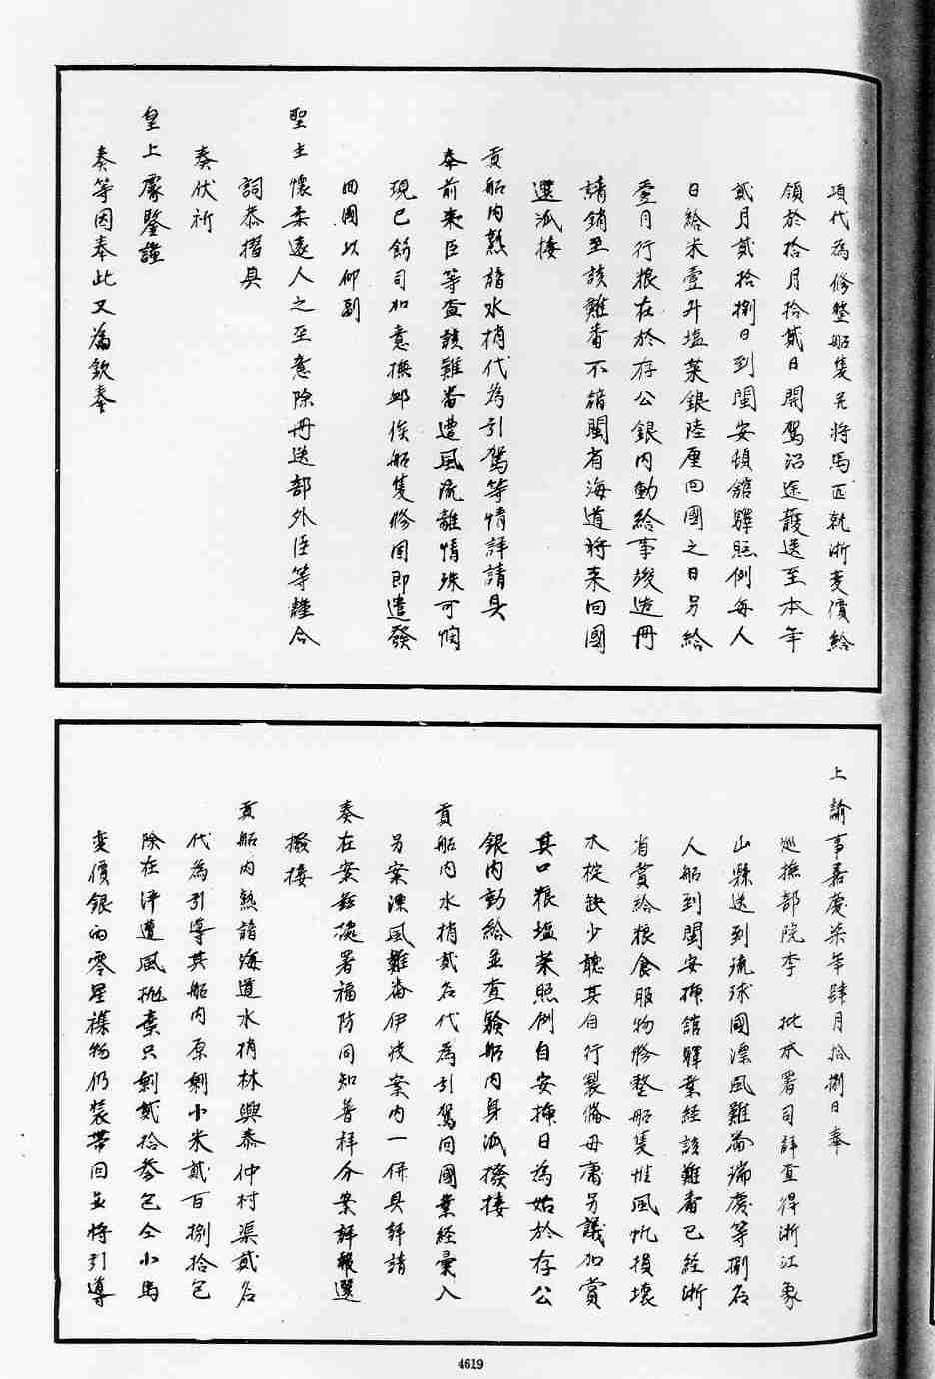 項代為修整船隻并將馬匹就浙变價給
領於拾月拾貳日開駕沿途護送至本年
貳月貳拾捌日到閩安頓舘驛照例每人
日給米壹升塩菜銀陸厘回國之日另給
壹月行粮在於存公銀內動給事竣造冊
請銷至該難番不諳閩省海道将来回國
選派接
貢船內熟諳水梢代為引駕等情詳請具
奉前来臣等查該難番遭風流離情殊可憫
現已飭司加意撫卹俟船隻修固即遣發
回國以仰副
聖主懷柔遠人之至意除冊送部外臣等謹合
詞恭摺具
奏伏祈
皇上睿鑒謹
奏等因奉此又為欽奉
上諭事嘉慶柒年肆月拾捌日奉
巡撫部院李 批本署司詳查得浙江象
山縣送到琉球國漂風難番瑞慶等捌名
人船到閩安揷舘驛業經該難番已經浙
省賞給粮食服物修整船隻惟風帆損壞
木椗缺少聽其自行製偹毋庸另議加賞
其口粮塩菜照例自安揷日為始於存公
銀內動給並查驗船內身派撥接
貢船內水梢貳名代為引駕回國業經彙入
另案漂風難番伊波案內一併具詳請
奏在案兹據署福防同知普拜分案詳報選
撥接
貢船內熟諳海道水梢林興泰仲村渠貳名
代為引導其船內原剩小米貳百捌拾包
除在洋遭風抛棄只剩貳拾叁包仝小馬
变價銀両零星襍物仍装帯回並将引導
4619